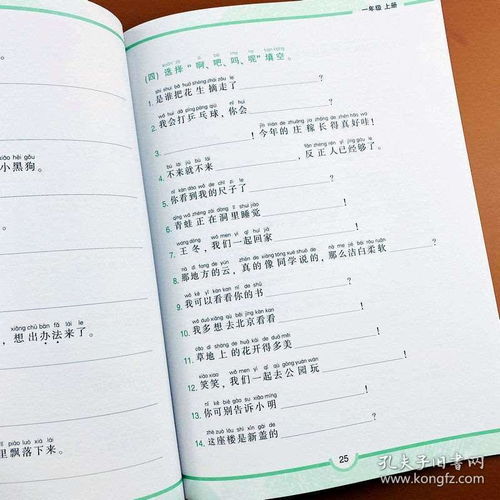 xiǎo hēi gǒu
小黑狗。
xiǎng chū bàn fǎ lái le
想出办法来了。
piāo luò xià lái
里飘落下来。
一年级 上册
(四) 选择“啊、吧、吗、呢”填空。
shì shuí bǎ huā shēng zhāi zǒu le
1. 是谁把花生摘走了____?
wǒ huì dǎ pīng pāng qiú nǐ huì
2. 我会打乒乓球，你会____?
jīn nián de zhuāng jia zhǎng de zhēn hǎo wa
3. ____!今年的庄稼长得真好哇!
bù lái jiù bù lái fǎn zhèng rén yǐ jīng gòu le
4. 不来就不来____，反正人已经够了。
nǐ kàn dào wǒ de chǐ zi le
5. 你看到我的尺子了____?
qīng wā zhèng zài dòng lǐ shuì jiào
6. 青蛙正在洞里睡觉____!
wáng dōng wǒ men yì qǐ huí jiā
7. 王冬，我们一起回家____!
nà dì fang de yún zhēn de xiàng tóng xué shuō de nà me jié bái róu ruǎn
8. 那地方的云，真的像同学说的，那么洁白柔软____?
wǒ kě yǐ kàn kan nǐ de shū
9. 我可以看看你的书____?
wǒ duō xiǎng qù běi jīng kàn kan
10. 我多想去北京看看____!
cǎo dì shàng de huā kāi de duō měi
11. 草地上的花开得多美____!
xiào xiao wǒ men yì qǐ qù gōng yuán wán
12. 笑笑，我们一起去公园玩____!
nǐ kě bié gào su xiǎo míng
13. 你可别告诉小明____!
zhè zuò lóu shì xīn gài de
14. 这座楼是新盖的____?
25
孔夫子旧书网
www.kongfz.com